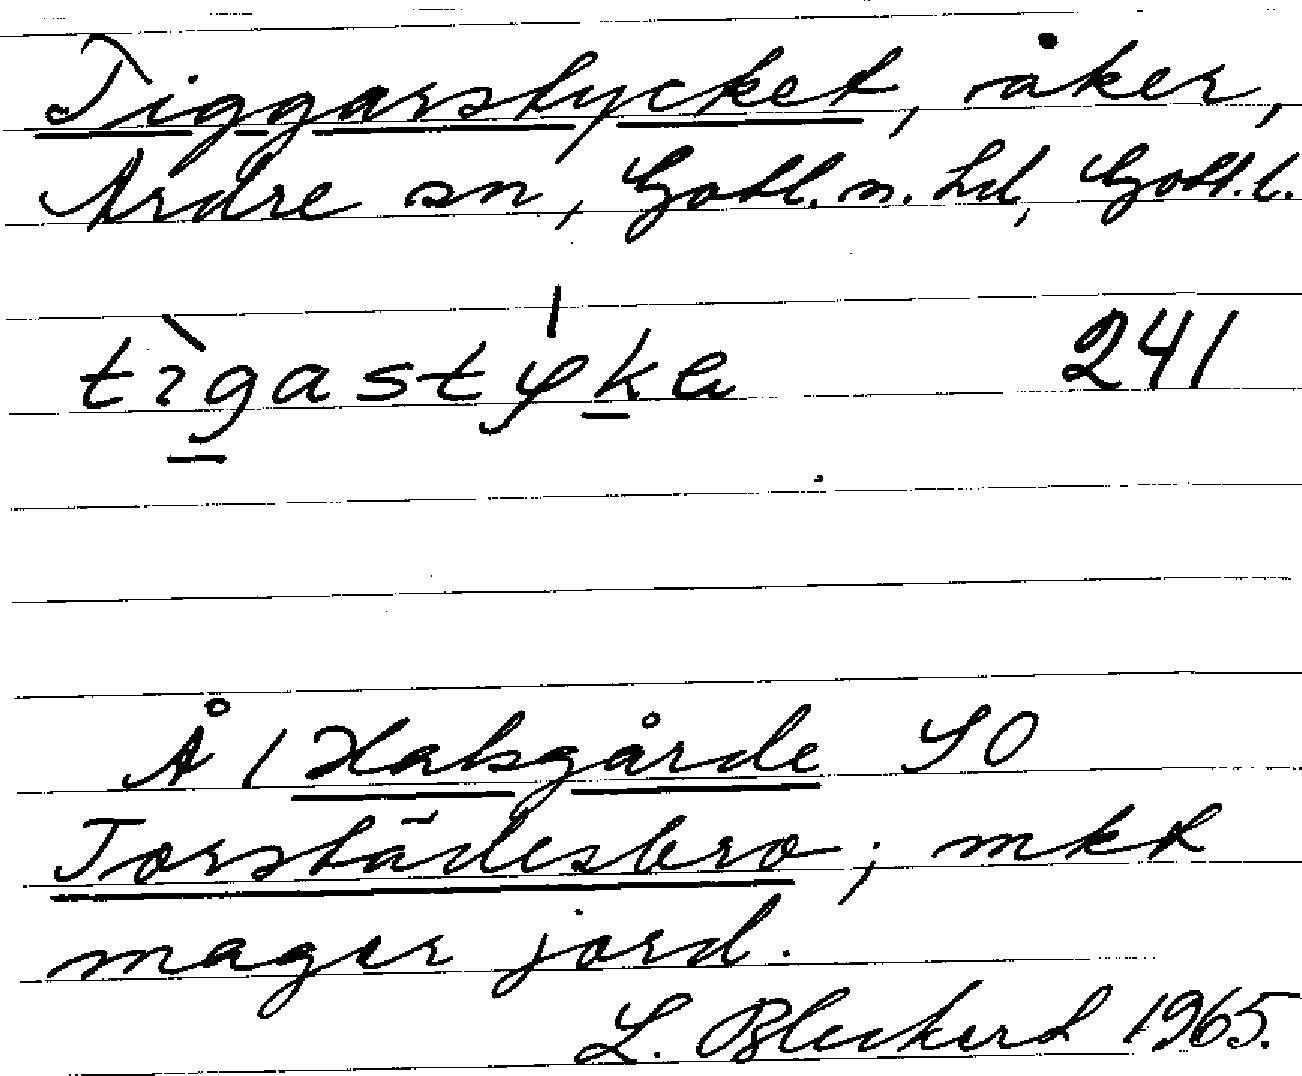 Tiggarstycket, åker,
Ardre sn, Gotl. n. hd, Gotl. l.
tìgastýka 241
Å / Halsgårde SO
Torstädesbro; mkt
mager jord.
L. Bleckert 1965.